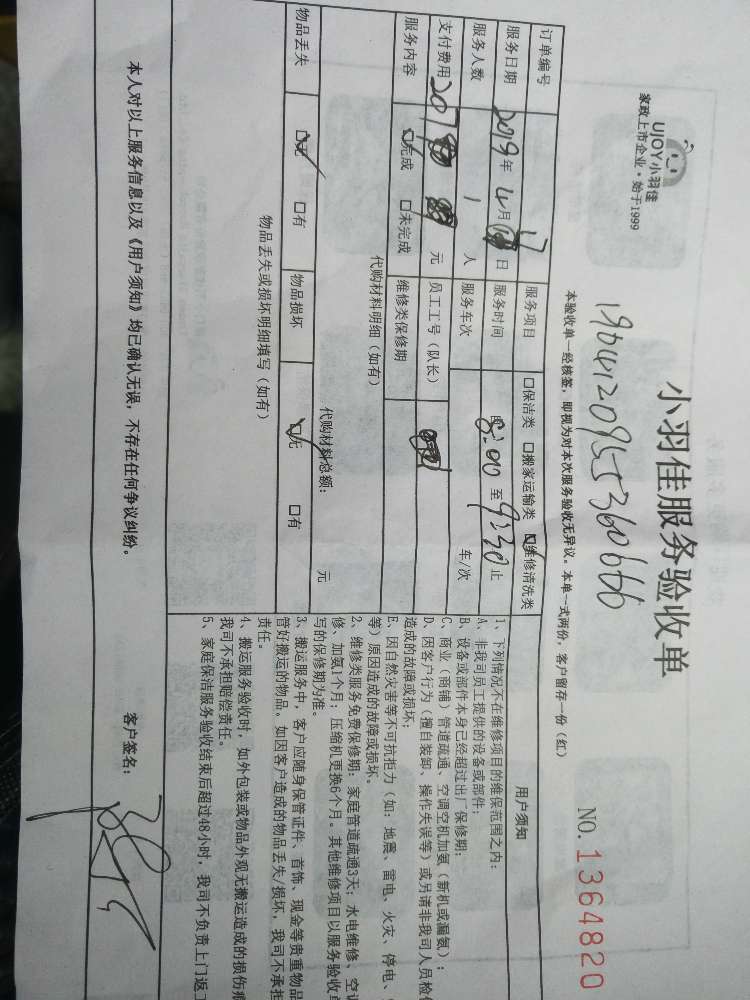 UJOY小羽佳
家政上市企业·始于1999
小羽佳服务验收单
NO.1364820
1904120955360666
本验收单一经核签，即视为对本次服务验收无异议。本单一式两份，客户留存一份（红）
订单编号
服务项目 口保洁类 口搬家运输类 口维修清洗类
服务日期 2019年4月17日 服务时间 8:00至9:30止
服务人数 1人 服务车次 车/次
支付费用 207 元 员工工号（队长）
服务内容 口完成 口未完成 维修类保修期
代购材料明细（如有）
代购材料总额： 元
物品丢失 口无 口有 物品损坏 口无 口有
物品丢失或损坏明细填写（如有）
用户须知
1、下列情况不在维修项目的维保范围之内：
A、非我司员工提供的设备或部件；
B、设备或部件本身已经超过出厂保修期；
C、商业（商铺）管道疏通、空调空机加氨（新机或漏氨）；
D、因客户行为（擅自装卸、操作失误等）或另请非我司人员检
造成的故障或损坏；
E、因自然灾害等不可抗拒力（如：地震、雷电、火灾、停电、
等）原因造成的故障或损坏。
2、维修类服务免费保修期：家庭管道疏通3天；水电维修、空
修、加氨1个月；压缩机更换6个月。其他维修项目以服务验收
写的保修期为准。
3、搬运服务中，客户应随身保管证件、首饰、现金等贵重物品
管好搬运的物品。如因客户造成的物品丢失/损坏，我司不承担
责任。
4、搬运服务验收时，如外包装或物品外观无搬运造成的损伤
我司不承担赔偿责任。
5、家庭保洁服务验收结束后超过48小时，我司不负责上门返
本人对以上服务信息以及《用户须知》均已确认无误，不存在任何争议纠纷。
客户签名：